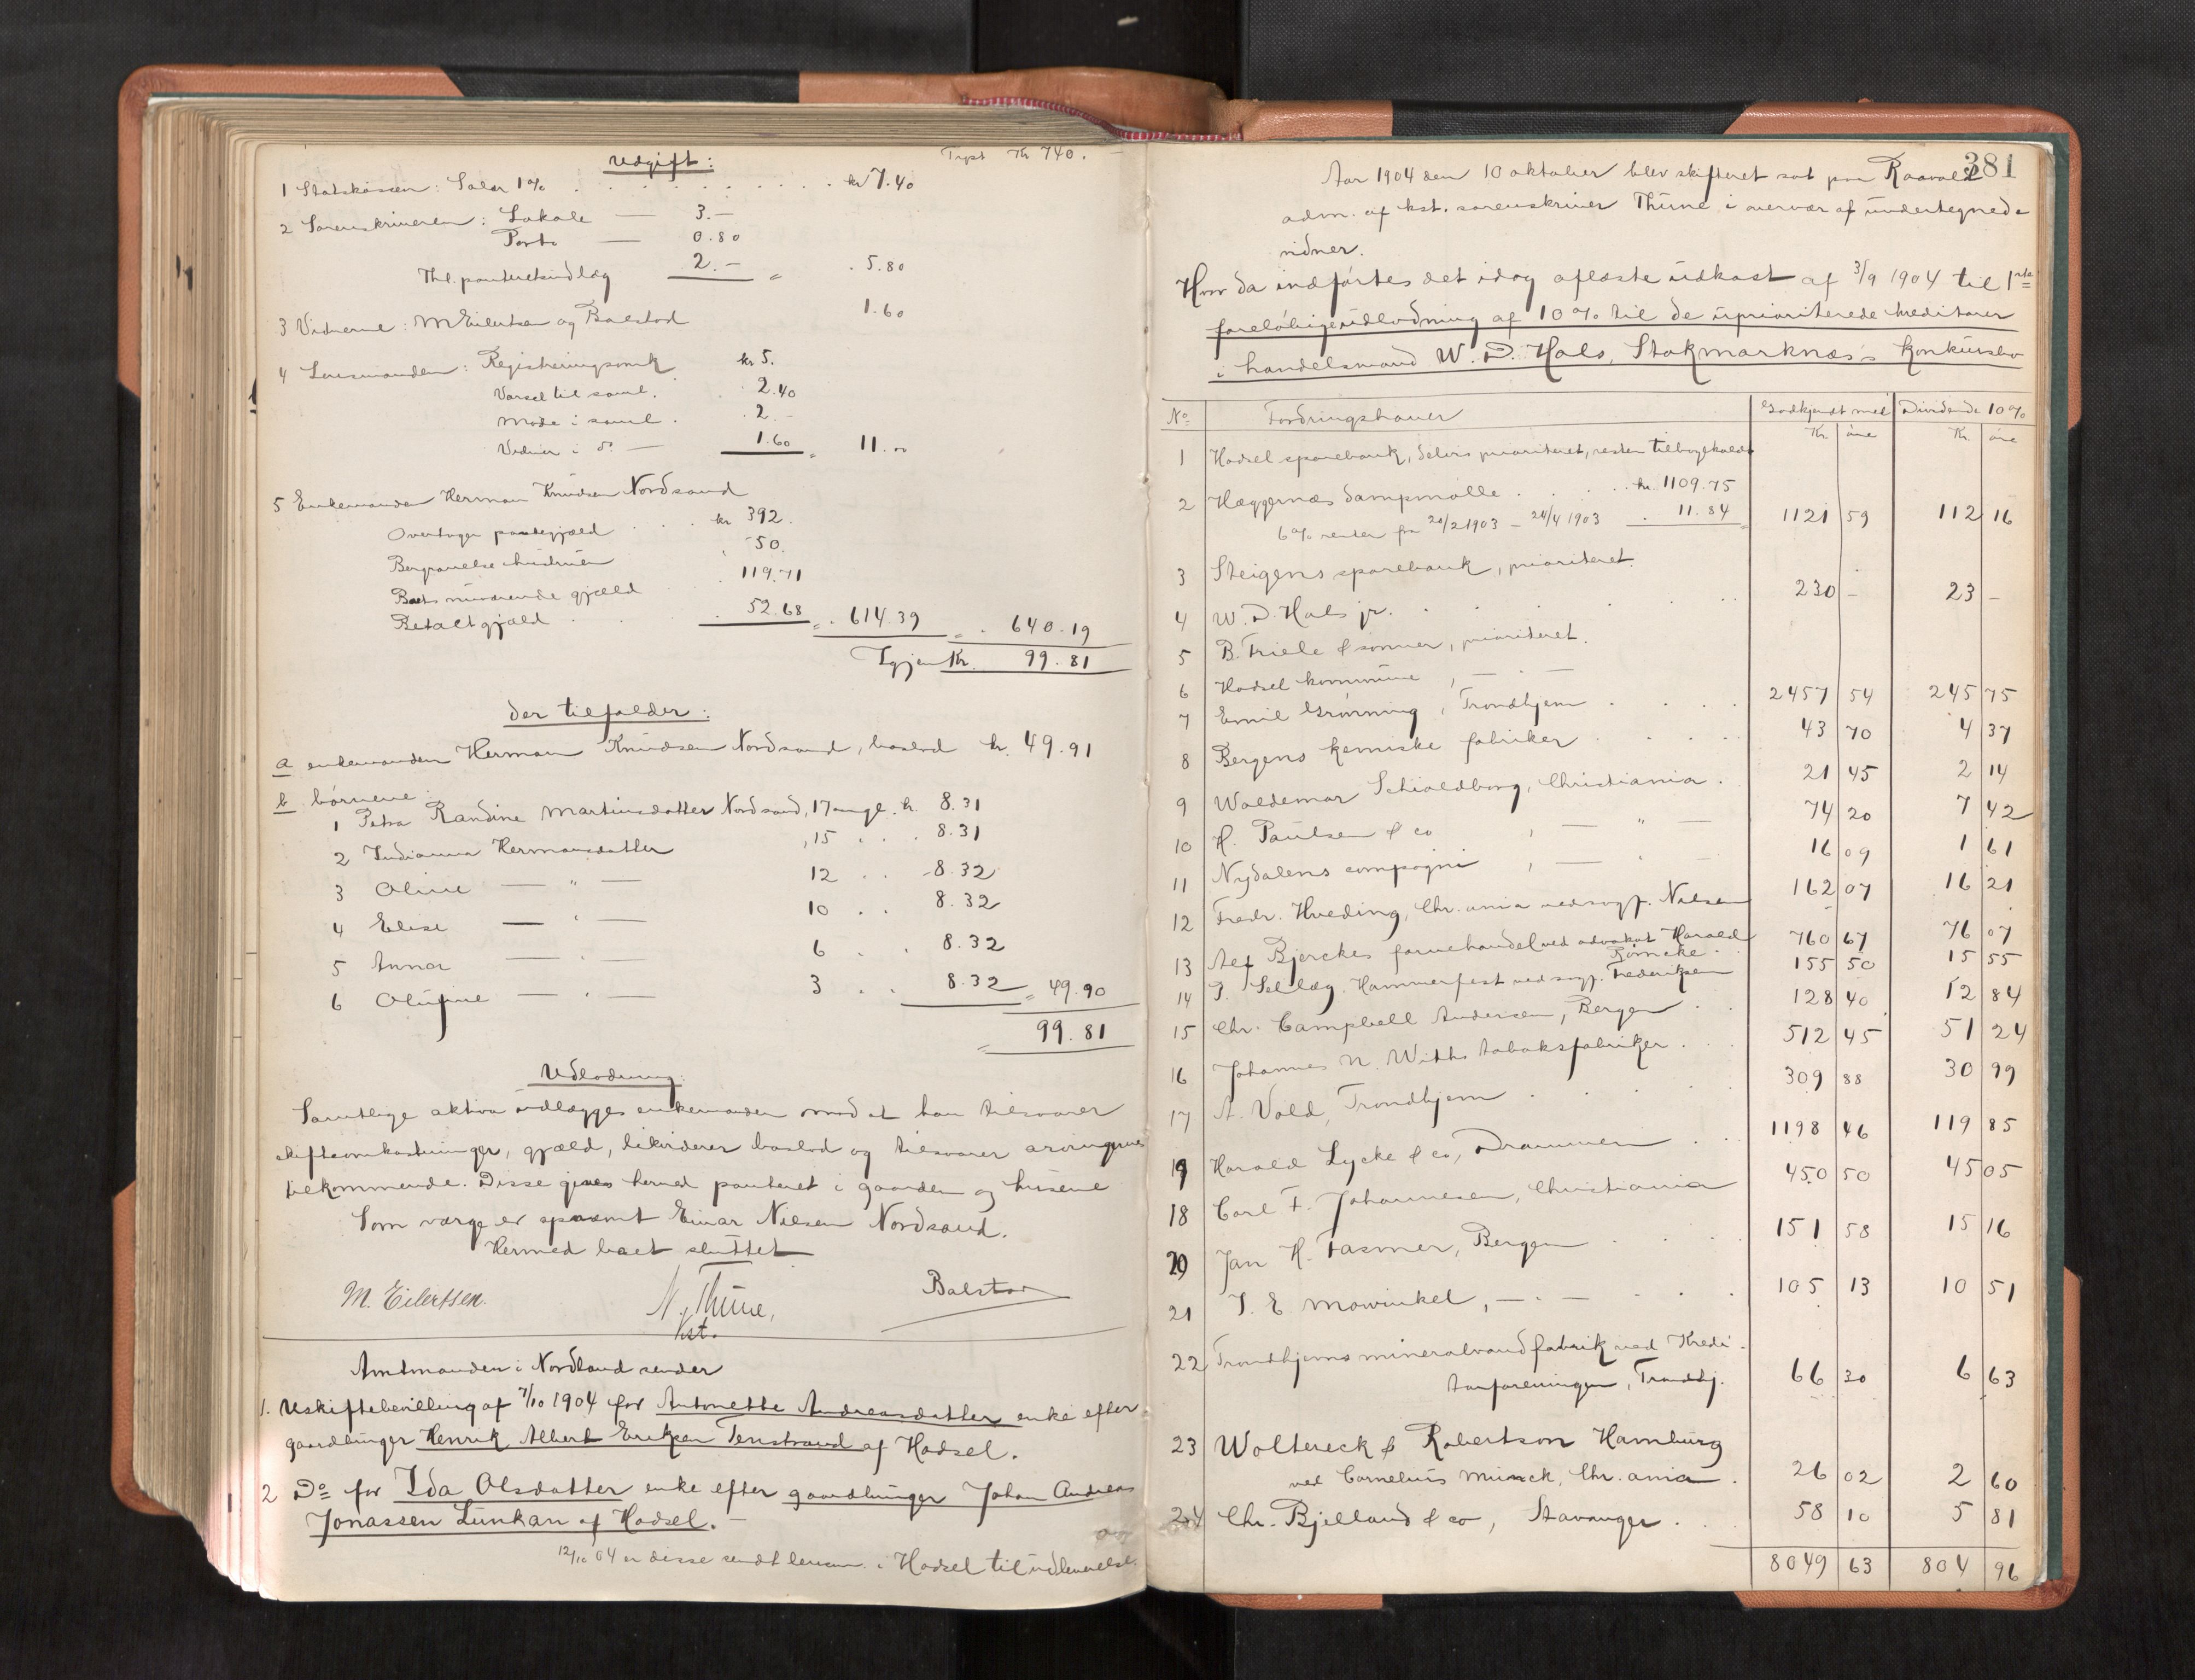 Udgift:
Trpt Kr 740.
1 Statskassen: Salær 1% . . . . kr 7.40
2 Sorenskriveren: Lokale — 3.—
Porto — 0.80
Thl. panteretsindlæg 2.— = . 5.80
3 Vidnerne: M Eilertsen og Balstad 1.60
4 Lensmanden: Registreringsomk kr 5.
Varsel til saml. . 2.40
Møde i saml. . 2.—
Vidner i do — 1.60 = 11.00
5 Enkemanden Herman Knudsen Nordsand
Overtager pantegjæld . . . kr 392.
Begravelse hustruen . 50.
Boets nuværende gjæld . 119.71
Betalt gjæld . . 52.68 = . 614.39 = . 640.19
Igjen Kr. 99.81
der tilfalder:
a enkemanden Herman Knudsen Nordsand, boslod kr. 49.91
b børnene:
1 Petra Randine Martinsdatter Nordsand, 17 aar gl. kr. 8.31
2 Indianna Hermansdatter , 15 . . 8.31
3 Oline — " — 12 . . 8.32
4 Elise — " — 10 . . 8.32
5 Anna — " — 6 . . 8.32
6 Olufine — " — 3 . . 8.32 = 49.90
= 99.81
Udlodning:
Samtlige aktiva udlægges enkemanden mod at han tilsvarer
skifteomkostninger, gjæld, likviderer boslod og tilsvarer arvingerne
tilkommende. Disse gives herved panteret i gaarden og husene
Som værge er opnævnt Einar Nilsen Nordsand.
Hermed boet sluttet
M. Eilertsen. N. Thune, Balstad
kst.
Amtmanden i Nordland sender
1. Uskiftebevilling af 7/10 1904 for Antonette Andreasdatter enke efter
gaardbruger Henrik Albert Eriksen Tenstrand af Hadsel.
2 Do for Ida Olsdatter enke efter gaardbruger Johan Andreas
Jonassen Lunkan af Hadsel. —
12/10 04 er disse sendt lensm. i Hadsel til udleverelse.
381
Aar 1904 den 10 oktober blev skifteret sat paa Raavold
adm. af kst. sorenskriver Thune i overvær af undertegnede
vidner.
Hvor da indførtes det idag oplæste udkast af 3/9 1904 til 1ste
foreløbige udlodning af 10% til de uprioriterede kreditorer
i handelsmand W. D. Hals, Stokmarknæs's konkursbo
No Fordringshaver Godkjendt med Dividende 10%
Kr. øre Kr. øre
1 Hadsel sparebank, delvis prioriteret, resten tilbagekaldt
2 Hæggernæs dampmølle . . . . kr. 1109.75
6% renter fra 20/2 1903 – 24/4 1903 . 11.84 = 1121 59 112 16
3 Steigens sparebank, prioriteret.
4 W. D. Hals jr. . . . . 230 — 23 —
5 B. Friele & sønner, prioriteret.
6 Hadsel kommune , — " —
7 Emil Grønning, Trondhjem . . . . 2457 54 245 75
8 Bergens kemiske fabriker . . . . 43 70 4 37
9 Waldemar Schioldborg, Christiania . 21 45 2 14
10 H. Paulsen & co , — " — 74 20 7 42
11 Nydalens compagni , — " — 16 09 1 61
12 Fredr. Hveding, Chr.ania ved sagf. Nilsen 162 07 16 21
13 Alf Bjerckes farvehandel ved advokat Harald
Rømcke. 760 67 76 07
14 P. Sellæg, Hammerfest ved sagf. Frederiksen 155 50 15 55
15 Chr. Campbell Andersen, Bergen . . 128 40 12 84
16 Johannes N. Withs tobaksfabriker . . . 512 45 51 24
17 A. Vold, Trondhjem . . . . 309 88 30 99
19 Harald Lycke & co, Drammen . . . 1198 46 119 85
18 Carl F. Johannesen, Christiania 450 50 45 05
20 Jan H. Fasmer, Bergen . . . 151 58 15 16
21 J. E. Mowinkel, — " — . . . 105 13 10 51
22 Trondhjems mineralvandfabrik ved Kredi-
torforeningen, Trondhj. 66 30 6 63
23 Woltereck & Robertson Hamburg
ved Cornelius Munck, Chr.ania . 26 02 2 60
24 Chr. Bjelland & co, Stavanger . . 58 10 5 81
8049 63 804 96